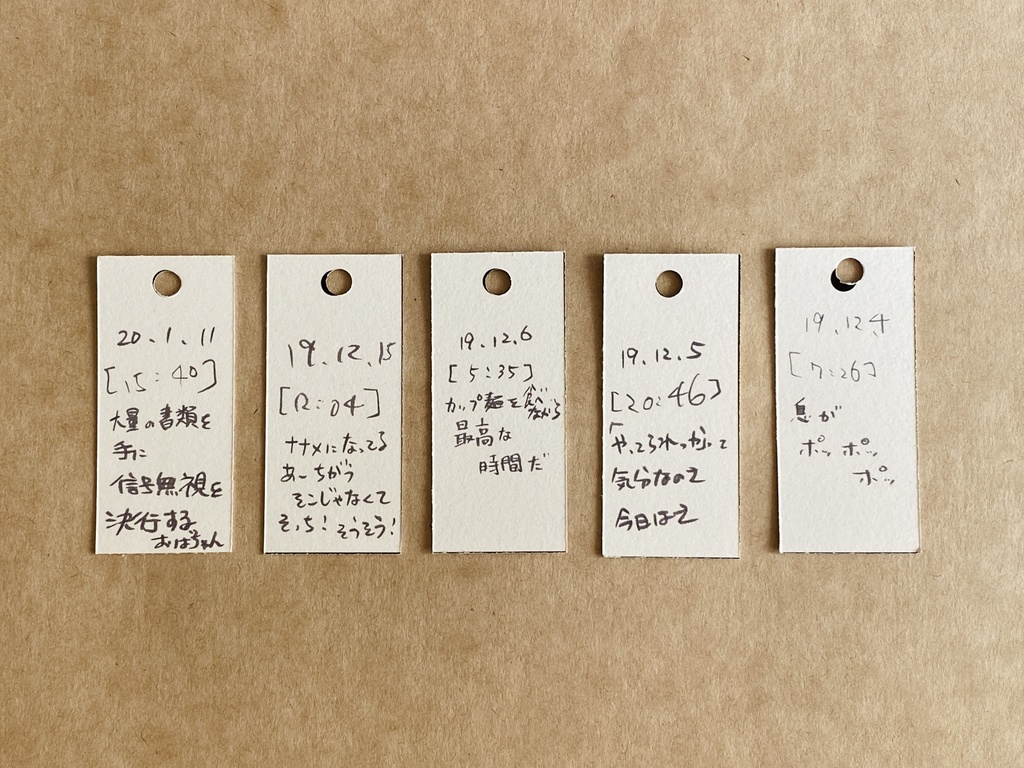 20.1.11
[15:40]
大量の書類を
手に
信号無視を
決行する
おばちゃん
19.12.15
[12:04]
ナナメになってる
あーちがう
そこじゃなくて
そっち!そうそう!
19.12.6
[5:35]
カップ麺を食べながら
最高な
時間だ
19.12.5
[20:46]
「やってられっかって
気分なので
今日はで
19.12.4
[7:26]
息が
ポッポッ
ポッ